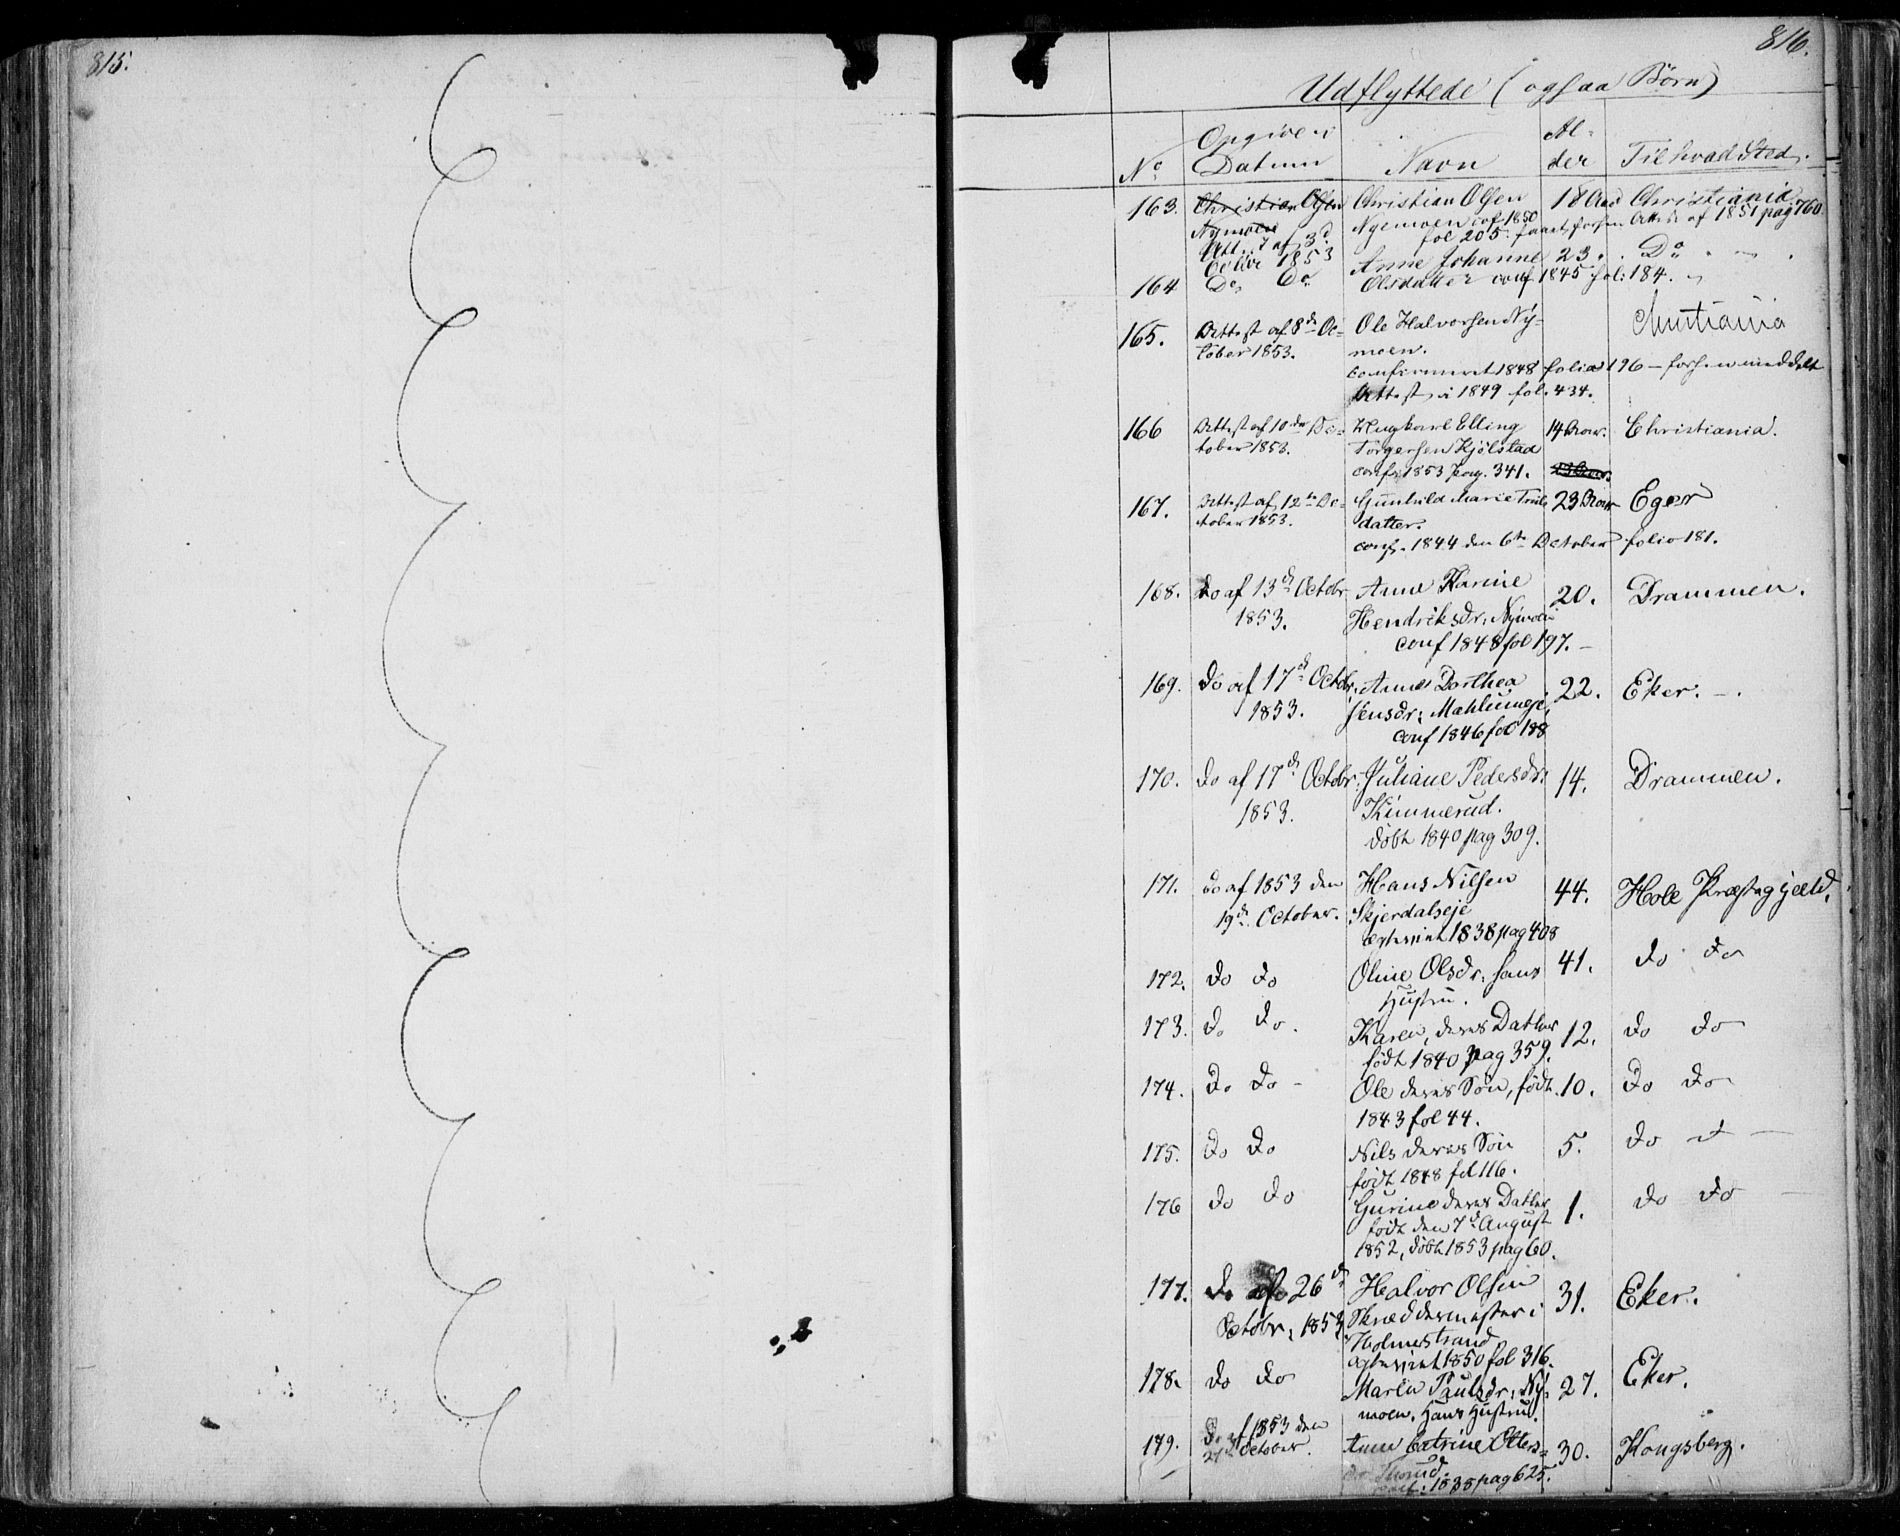 815.
816.
Udflyttede (ogsaa Børn)
No
Opgiven Datum
Navn
Alder
Til hvad Sted.
163. Christian Olsen Christian Olsen 18 Aar Christiania
Nymoen Nyemoen conf 1850
Att. 7 af 3d fol 205. faaet forhen Attest af 1851 pag 760
Octbr 1853 Anna Johanne 23. Do
164 Do Do Olsdatter conf 1845 fol: 184.
165. Attest af 8de Oc- Ole Halvorsen Ny- Christiania
tober 1853. moen.
confirmeret 1848 folio 196 - forhen meddelt
Attest i 1849 fol. 434.
166 Attest af 10de Oc- Ungkarl Elling 14 Aar. Christiania.
tober 1853. Torgersen Kjølstad
conf. 1853 pag. 341.
167. Attest af 12te Oc- Gunhild Marie Truls 23 Aar Eger
tober 1853. datter.
conf. 1844 den 6te October folio 181.
168. do af 13de Octobr Anne Karine 20. Drammen.
1853. Hendriksdr. Nymoen
conf 1848 fol 197.-
169. do af 17de Octobr. Anne Dorthea 22. Eker. -.
1853. Jensdr: Mahlumeje
conf 1846 fol 188
170. do af 17de Octobr. Juliane Pedersdr. 14. Drammen.
1853. Kimmerud.
døbt 1840 pag 309.
171. do af 1853 den Hans Nilsen 44. Hole Præstegjæld.
19de October. Skjerdalseje
ægteviet 1838 pag 408
172. do do Oline Olsdr. hans 41. do do
Hustru.
173. do do. Karen, deres Datter 12. do do
født 1840 pag 359.
174. do do - Ole deres Søn, født 10. do do
1843 fol 44.
175. do do Nils deres Søn 5. do d -
født 1848 fol 116.
176 do do Gurine deres Datter 1. do do -
født den 7de August
1852, døbt 1853 pag 60.
177. do af 26de Halvor Olsen 31. Eker.
Octobr. 1853 Skræddermester i
Holmestrand
ægteviet 1850 fol 316.
178. do do Maren Paulsdr. Ny- 27. Eker.
moen, Hans Hustru.
179. do af 1853 den Anne Catrine Otters- 30. Kongsberg.
October. dr Thorud.
conf. 1838 pag 625.